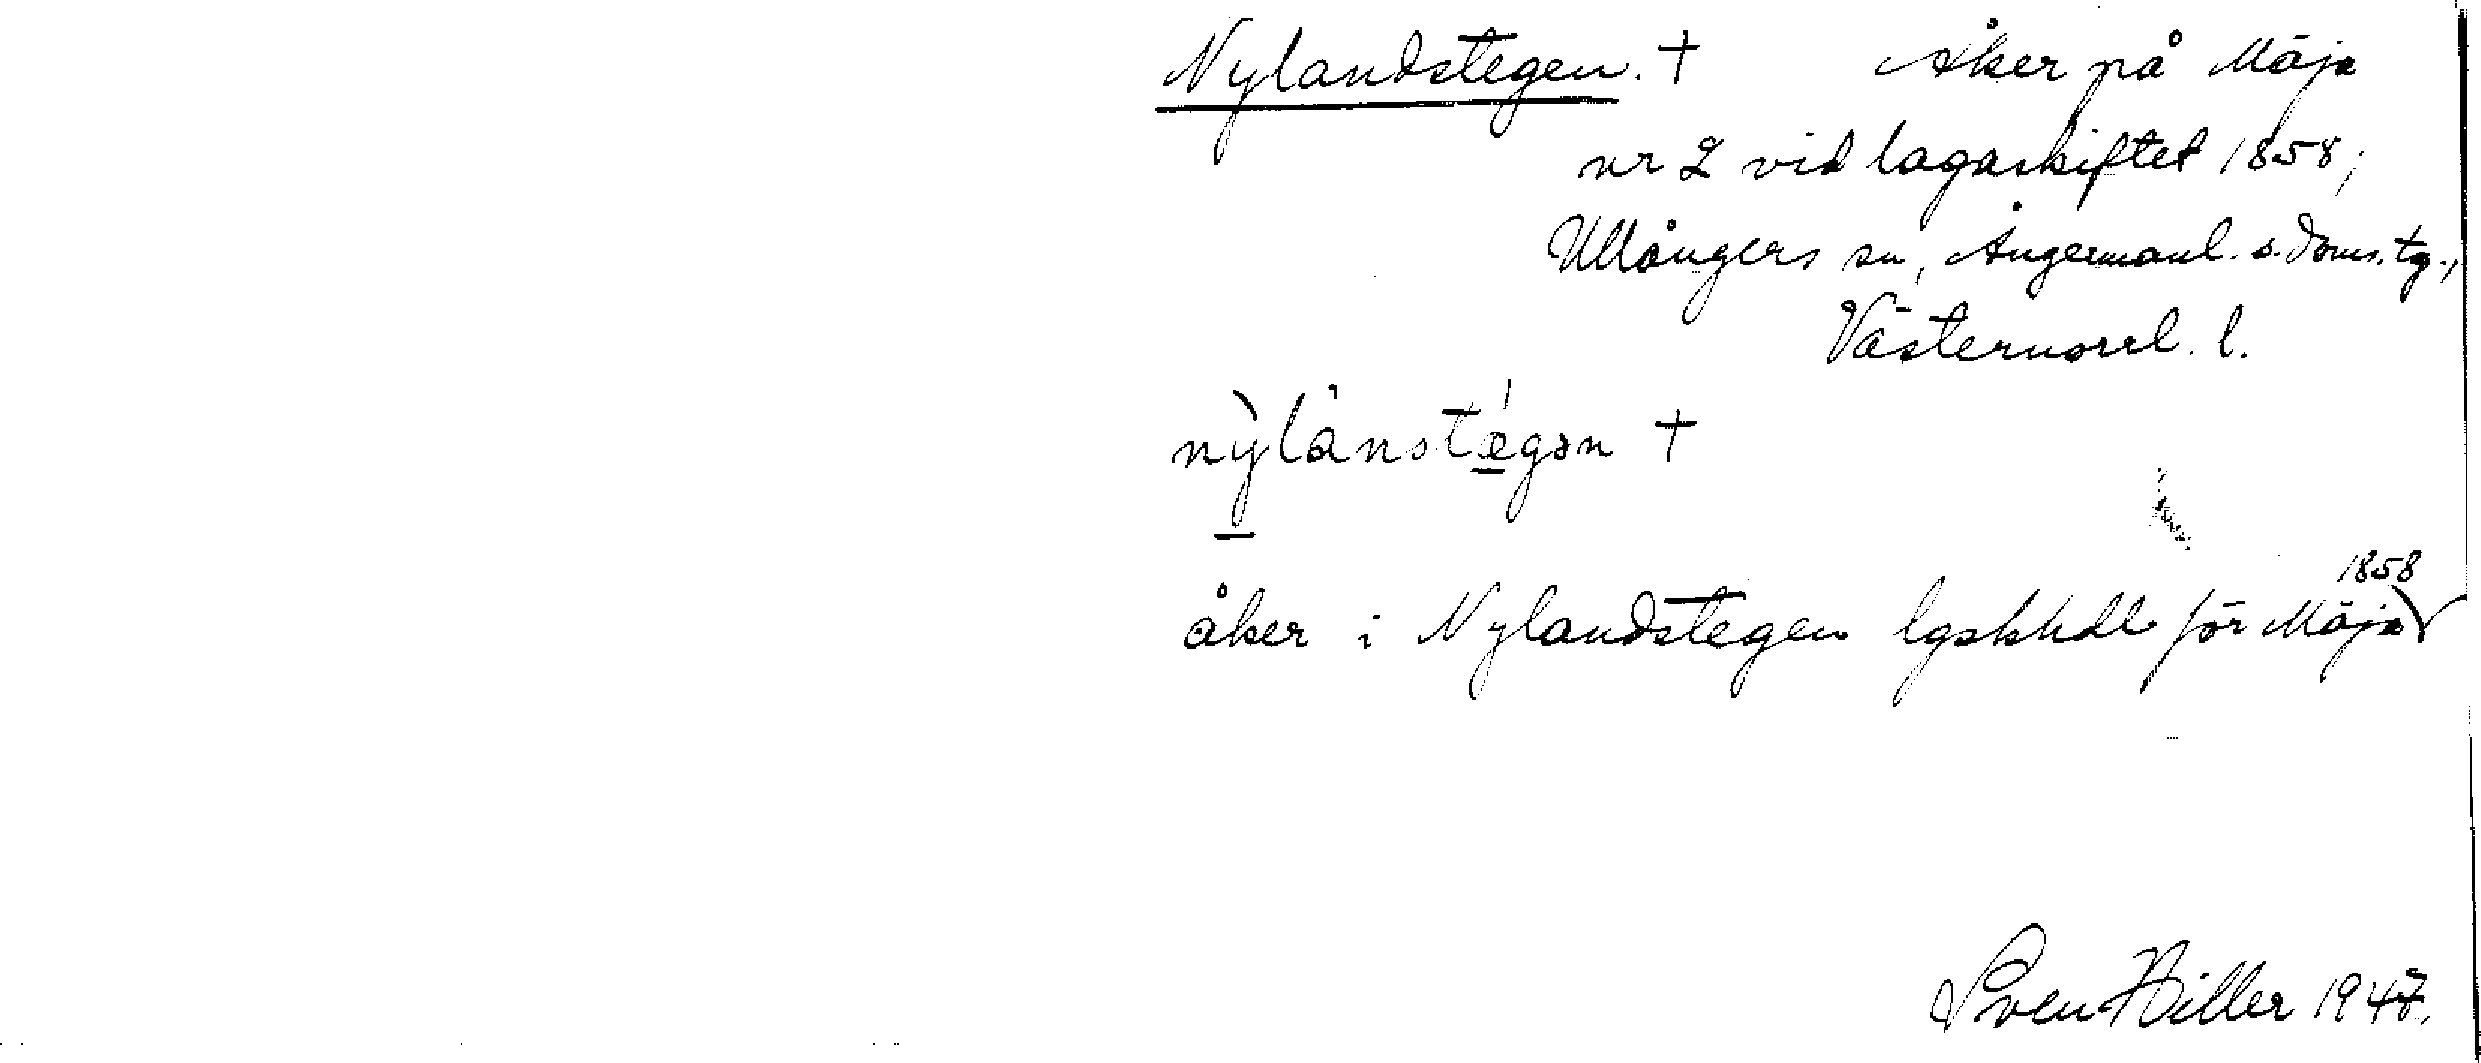 Nylandstegen. † Åker på Mäja
nr 2 vid lagaskiftet 1858;
Ullångers sn, Ångermanl. s. doms. tg.,
Västernorrl. l.
nỳlànstégən †
åker i Nylandstegen lgskhdl för Mäja 1858
Sven Hiller 1947.